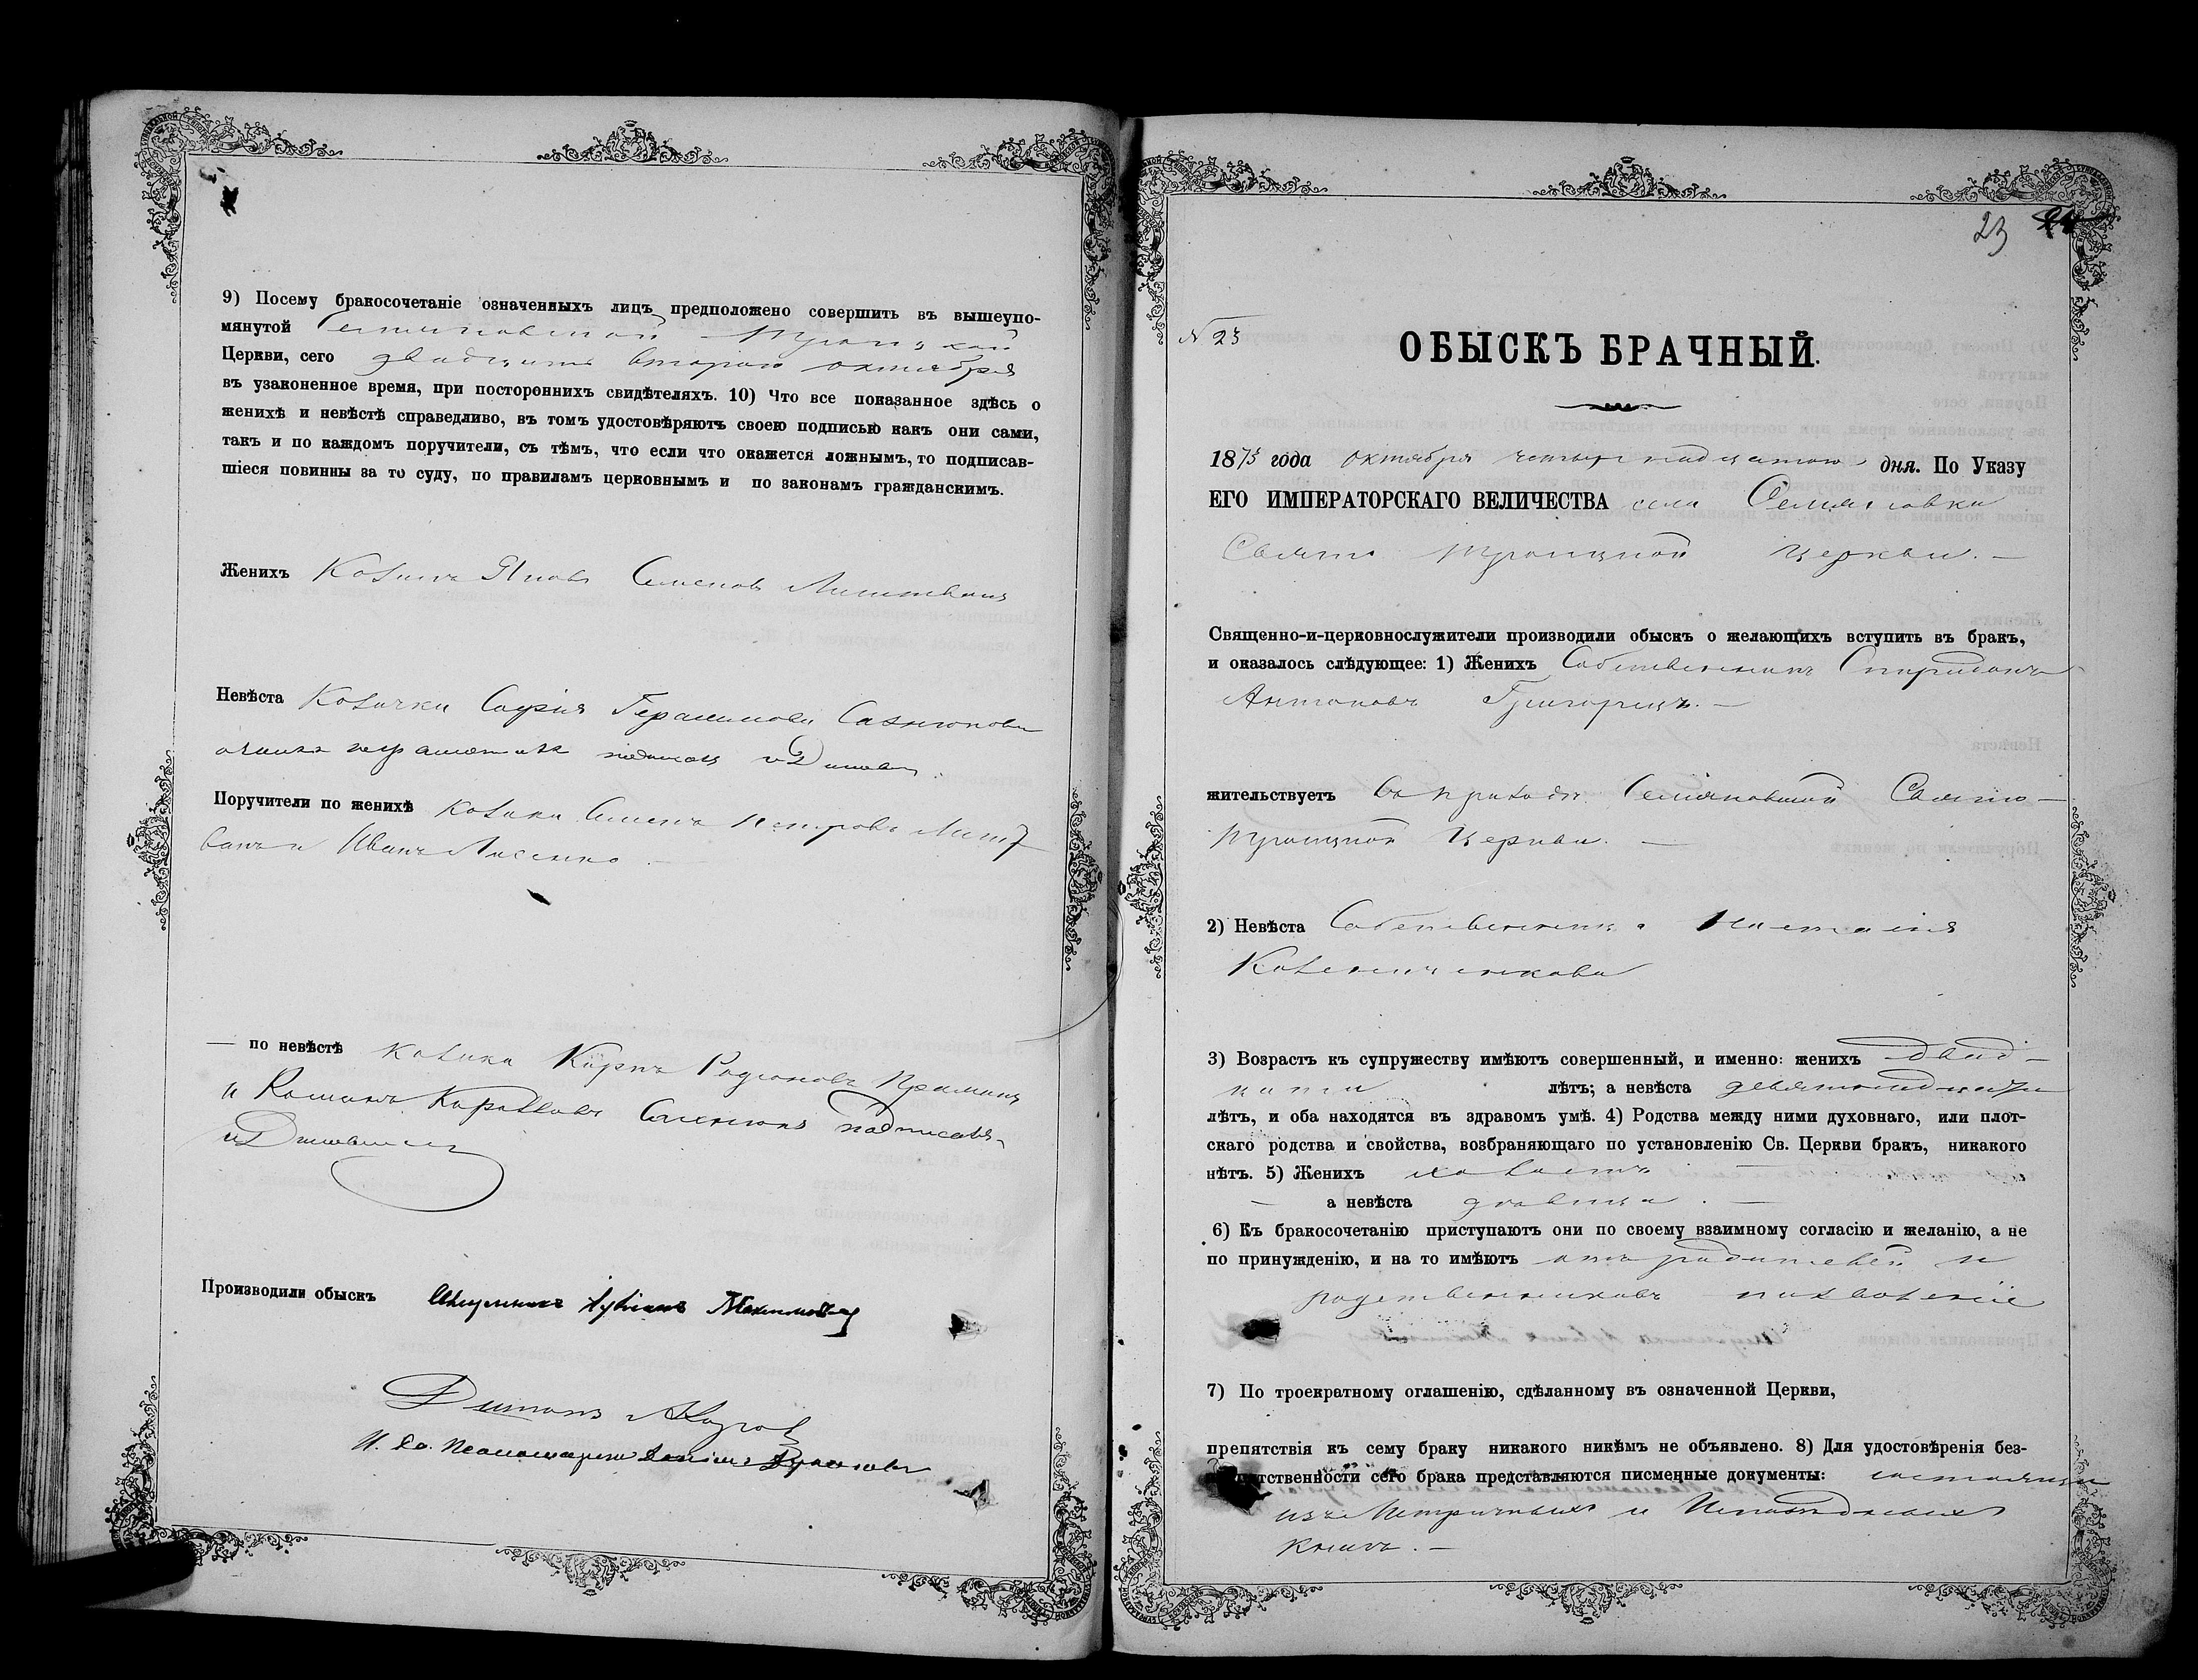 9) Посему бракосочетаніе означенныхъ лицъ предположено совершить въ вышеупо-
мянутой
Церкви, сего двадцать второго октября
въ узаконенное время, при постороннихъ свидѣтеляхъ. 10) Что все показанное здѣсь о
женихѣ и невѣстѣ справедливо, въ томъ удостовѣряютъ своею подписью какъ они сами,
такъ и по каждомъ поручители, съ тѣмъ, что если что окажется ложнымъ, то подписав-
шіеся повинны за то суду, по правиламъ церковнымъ и по законамъ гражданскимъ.
Женихъ Козакъ Яковъ Семеновъ
Невѣста Козачка Софія Герасимова
неграмотна
Поручители по женихѣ козаки Семенъ Петровъ Лит
ванъ и Иванъ Лисенко
— по невѣстѣ козаки Карпъ Родіоновъ
и Романъ
Производили обыскъ Священникъ
И. до. Пономаря
23
N 23
ОБЫСКЪ БРАЧНЫЙ.
1875 года октября четырнадцатого дня. По Указу
ЕГО ИМПЕРАТОРСКАГО ВЕЛИЧЕСТВА села Семяновки
Свято Троицкой церкви. —
Священно-и-церковнослужители производили обыскъ о желающихъ вступить въ бракъ,
и оказалось слѣдующее: 1) Женихъ Собственникъ Спиридонъ
Антоновъ Григорецъ. —
жительствуетъ въ приходѣ Семяновской Свято —
Троицкой Церкви. —
2) Невѣста Собственница Наталія
3) Возрастъ къ супружеству имѣютъ совершенный, и именно: женихъ двад —
цати лѣтъ; а невѣста девятнадцати
лѣтъ, и оба находятся въ здравомъ умѣ. 4) Родства между ними духовнаго, или плот-
скаго родства и свойства, возбраняющаго по установленію Св. Церкви бракъ, никакого
нѣтъ. 5) Женихъ холостъ —
— а невѣста дѣвица. —
6) Къ бракосочетанію приступаютъ они по своему взаимному согласію и желанію, а не
по принужденію, и на то имѣютъ отъ родителей и
родственниковъ позволеніе
7) По троекратному оглашенію, сдѣланному въ означенной Церкви,
препятствія къ сему браку никакого никѣмъ не объявлено. 8) Для удостовѣренія без-
сего брака представляются писменные документы: состоящіе
изъ Метричныхъ и Исповѣдныхъ
книгъ. —